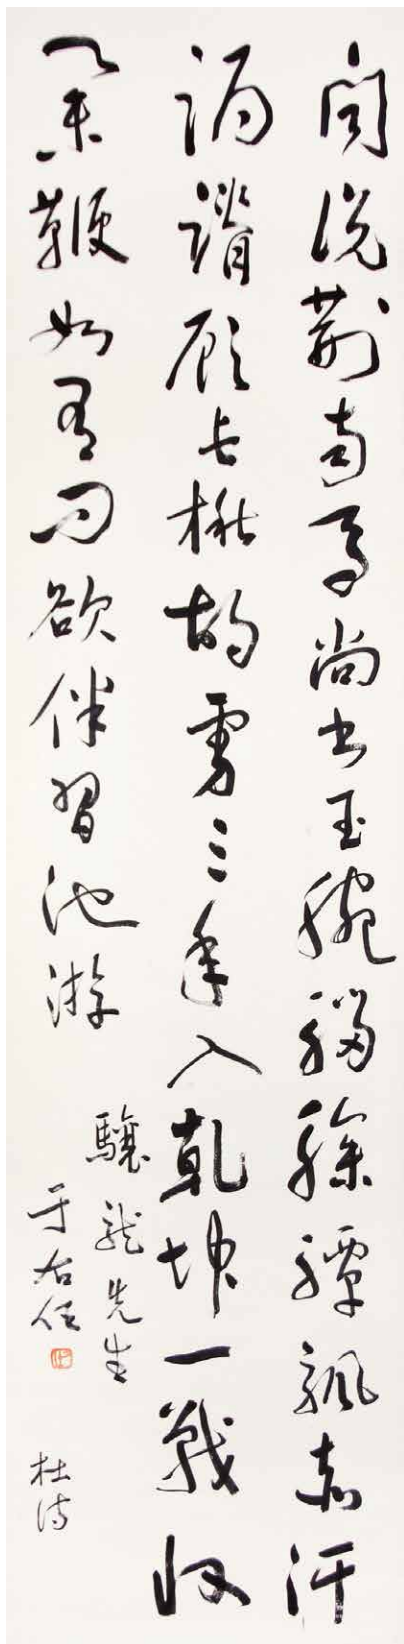 聞說荊南馬尚書玉腕騮驂驔飄赤汗
跼蹐顧長楸胡虜三年入乾坤一戰收
舉鞭如有問欲伴習池游
驤龍先生
于右任
杜詩